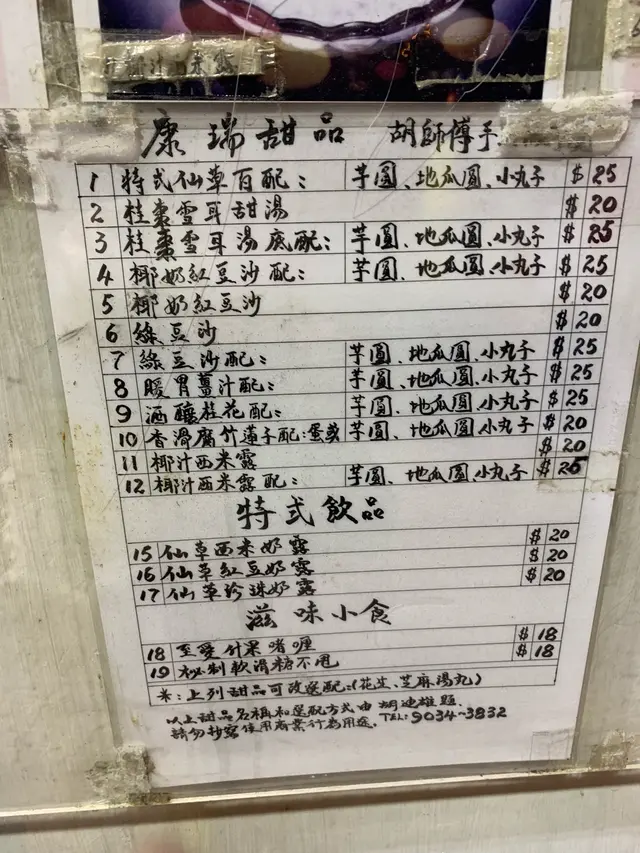 康瑞甜品 胡師傅手
1 特式仙草百配： 芋圓、地瓜圓、小丸子 $ 25
2 桂棗雪耳甜湯 $ 20
3 桂棗雪耳湯底配： 芋圓、地瓜圓、小丸子 $ 25
4 椰奶紅豆沙配： 芋圓、地瓜圓、小丸子 $ 25
5 椰奶紅豆沙 $ 20
6 綠豆沙 $ 20
7 綠豆沙配： 芋圓、地瓜圓、小丸子 $ 25
8 暖胃薑汁配： 芋圓、地瓜圓、小丸子 $ 25
9 酒釀桂花配： 芋圓、地瓜圓、小丸子 $ 25
10 香滑腐竹蓮子配： 芋圓、地瓜圓、小丸子 $ 20
11 椰汁西米露 $ 20
12 椰汁西米露配： 芋圓、地瓜圓、小丸子 $ 25
特式飲品
15 仙草西米奶露 $ 20
16 仙草紅豆奶露 $ 20
17 仙草珍珠奶露 $ 20
滋味小食
18 至愛什果啫喱 $ 18
19 秘制軟滑糖不甩 $ 18
*：上列甜品可改選配：(花生、芝麻湯丸)
以上甜品名稱和選配方式由胡迎雄題.
請勿抄寫作用商業行為用途. TEL: 9034-3832